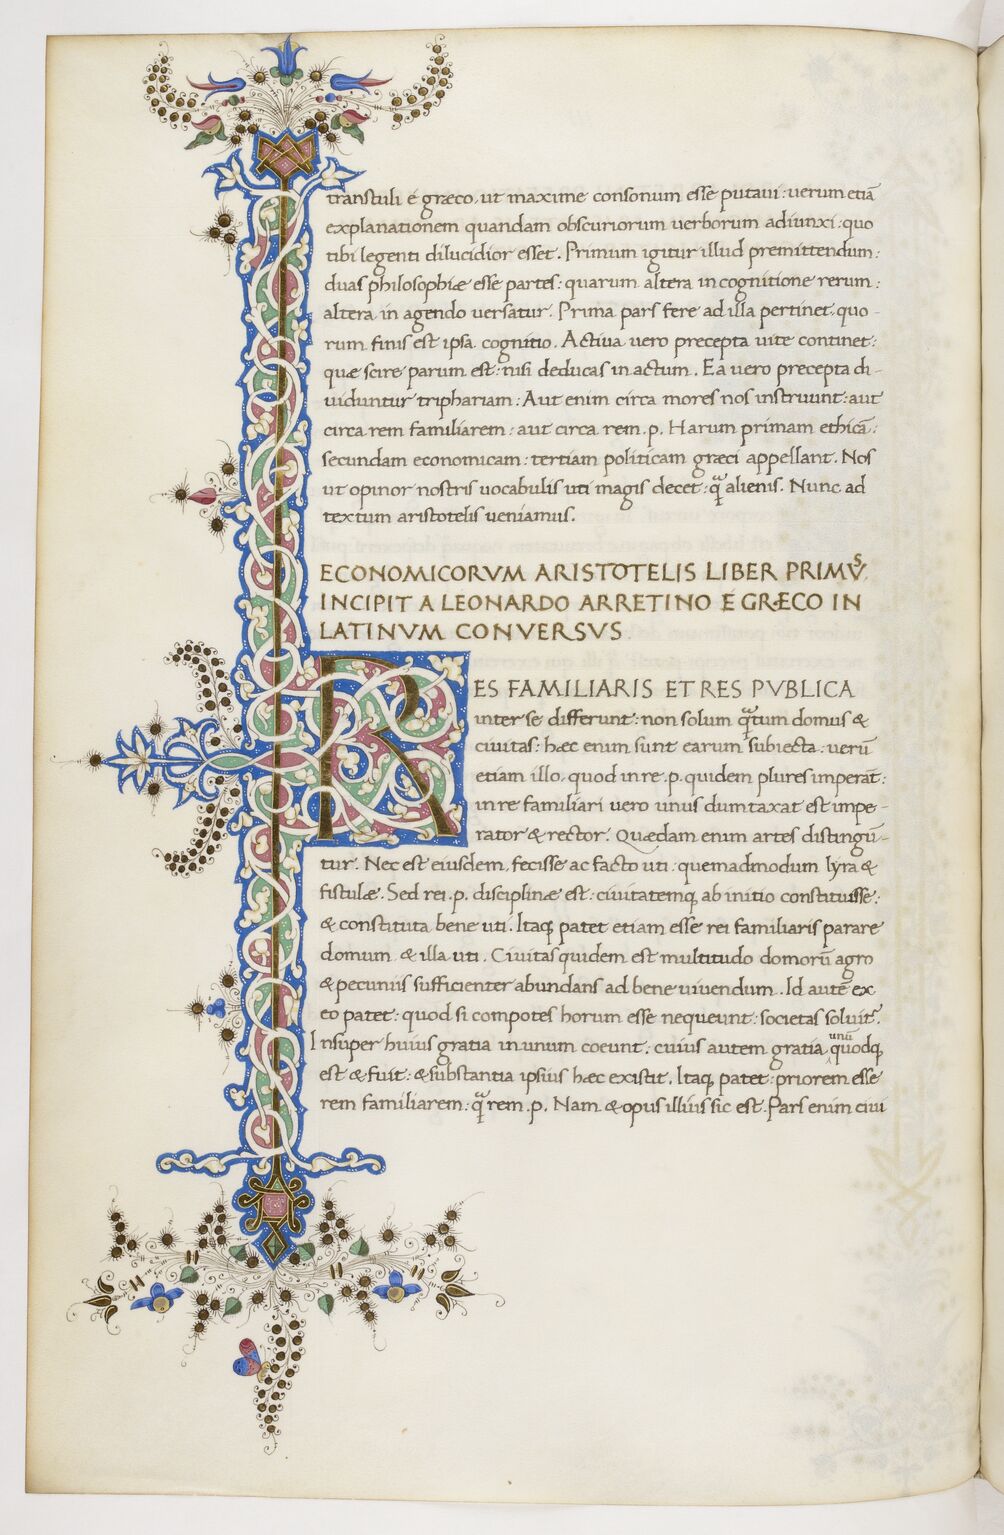 transtuli e græco, ut maxime consonum esse putaui: uerum etiā
explanationem quandam obscuriorum uerborum adiunxi: quo
tibi legenti dilucidior esset. Primum igitur illud premittendum:
duas philosophiæ esse partes: quarum altera in cognitione rerum:
altera in agendo uersatur. Prima pars fere ad illa pertinet: quo-
rum finis est ipsa cognitio. Actiua uero precepta uite continet:
quæ scire parum est: nisi deducas in actum. Ea uero precepta di-
uiduntur triphariam: Aut enim circa mores nos instruunt: aut
circa rem familiarem: aut circa rem .p. Harum primam ethicā:
secundam economicam: tertiam politicam græci appellant. Nos
ut opinor nostris uocabulis uti magis decet: q̄ꝫ alienis. Nunc ad
textum aristotelis ueniamus.
ECONOMICORVM ARISTOTELIS LIBER PRIMVS
INCIPIT A LEONARDO ARRETINO E GRÆCO IN
LATINVM CONVERSVS.
RES FAMILIARIS ET RES PVBLICA
inter se differunt: non solum q̄ꝫtum domus &
ciuitas: hæc enim sunt earum subiecta: uerū
etiam illo, quod in re .p. quidem plures imperāt:
in re familiari uero unus dumtaxat est impe-
rator & rector. Quædam enim artes distingū-
tur. Nec est eiusdem, fecisse ac facto uti: quemadmodum lyra &
fistulæ. Sed rei .p. disciplinæ est: ciuitatemq; ab initio constituisse:
& constituta bene uti. Itaq; patet etiam esse rei familiaris parare
domum & illa uti. Ciuitas quidem est multitudo domorū agro
& pecuniis sufficienter abundans ad bene uiuendum. Id autē ex
eo patet: quod si compotes horum esse nequeunt: societas soluit᷑.
Insuper huius gratia in unum coeunt: cuius autem gratia unū quodq;
est & fuit: & substantia ipsius hæc existit. Itaq; patet: priorem esse
rem familiarem: q̄ꝫ rem .p. Nam & opus illius sic est. Pars enim ciui